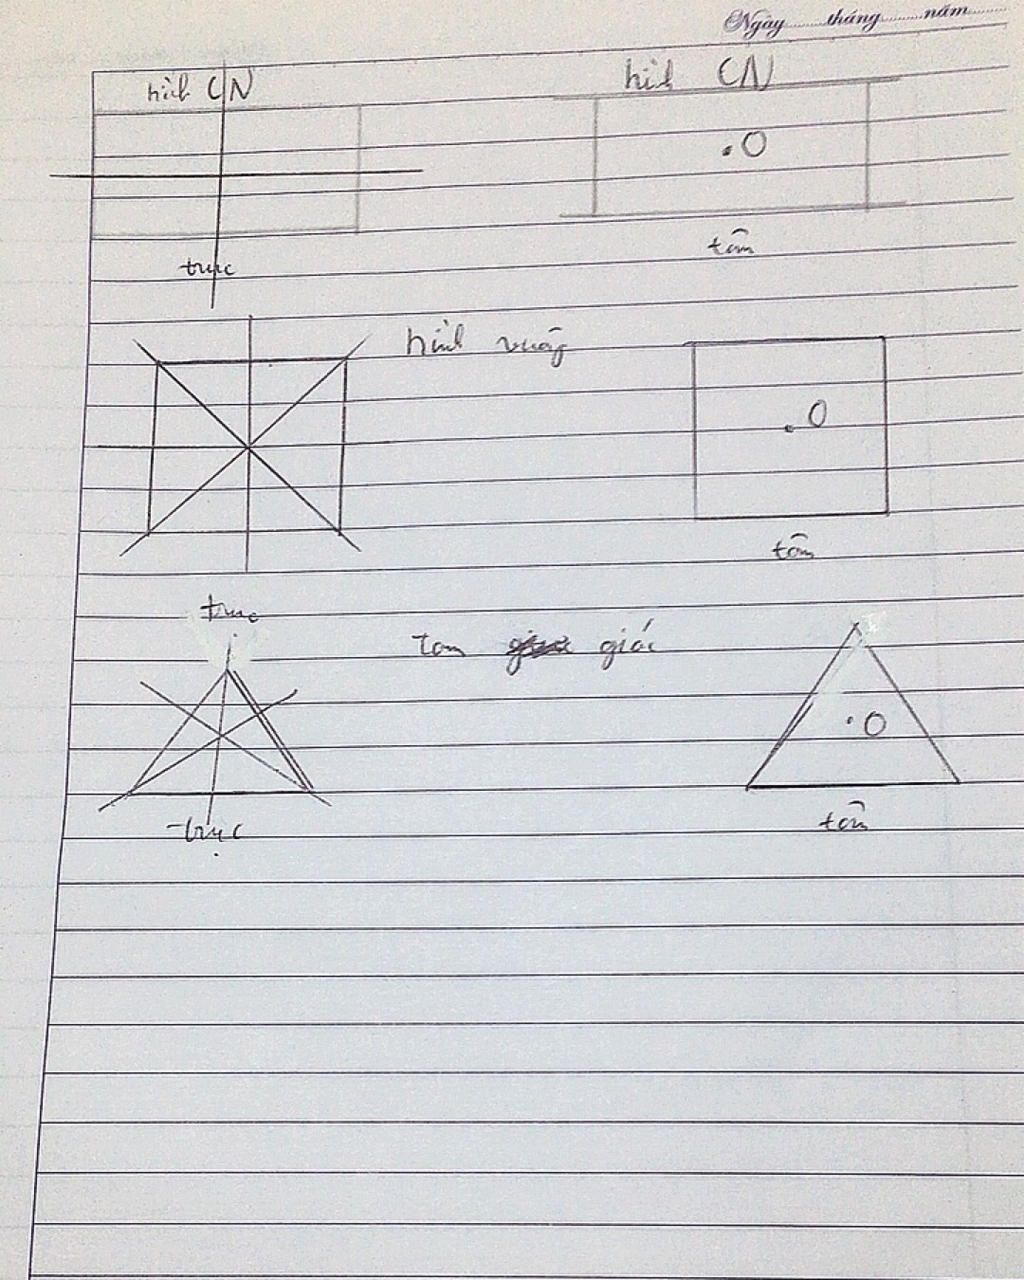 Ngày.........tháng.........năm.........
hìh CN
hìh CN
.O
trục
tâm
hình vuông
.O
tâm
trục
tam giác
.O
trục
tâm